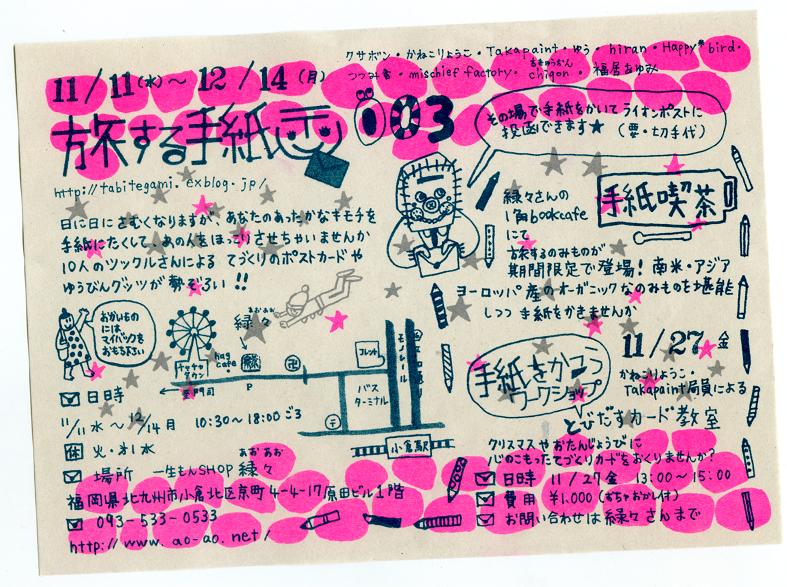 クサボン・かねこりょうこ・Takapaint・ゆう・hiran・Happy*bird・
つつみ舎・mischief factory・chigon・福居あゆみ
11/11(水)〜12/14(月)
旅する手紙展 003
http://tabitegami.exblog.jp/
その場で手紙をかいてライオンポストに
投函できます★(要・切手代)
日に日にさむくなりますが、あなたのあったかなキモチを
手紙にたくして、あの人をほっこりさせちゃいませんか
10人のソックルさんによる てづくりのポストカードや
ゆうびんグッツが勢ぞろい!!
手紙喫茶
緑々さんの
1角bookcafe
にて
旅するのみものが
期間限定で登場! 南米・アジア
ヨーロッパ産のオーガニックなのみものも堪能
しつつ 手紙をかきませんか
おかいもの
には
マイバックを
おもち下さい
チャチャ
タウン
至門司
hag
cafe
あおあお
緑々
P
卍
コレット
バス
ターミナル
モノレール
〒
小倉駅
日時
11/11水〜12/14月 10:30〜18:00ごろ
休 火・第1水
場所 一生もんSHOP 緑々
あおあお
福岡県北九州市小倉北区京町4-4-17原田ビル1階
093-533-0533
http://www.ao-ao.net/
手紙をかこう
ワークショップ
11/27金
かねこりょうこ・
Takapaint局員による
とびだすカード教室
クリスマスやおたんじょうびに
心のこもったてづくりカードをおくりませんか?
日時 11/27金 13:00〜15:00
費用 ¥1,000(おちゃおかし付)
お問い合わせは緑々さんまで